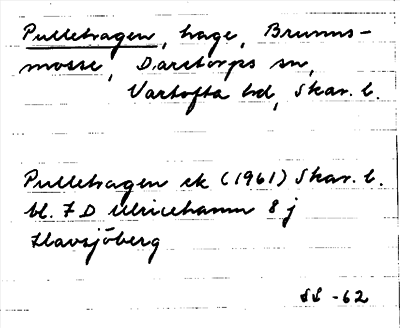 Pullehagen, hage, Brunns-
mosse, Daretorps sn,
Vartofta hd, Skar. l.
Pullehagen ek (1961) Skar. l.
bl. 7 D Ulricehamn 8 j
Havsjöberg
SS -62